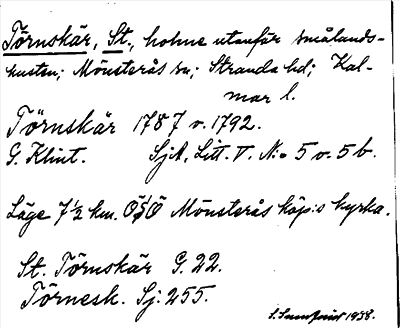 Törnskär, St., holme utanför smålands-
kusten; Mönsterås sn; Stranda hd; Kal-
mar l.
Törnskär 1787 o. 1792.
G. Klint. SjA, Litt. V. N:o 5 o. 5 b.
Läge 7½ km. ÖSÖ Mönsterås köp:s kyrka.
St. Törnskär G. 22.
Törnesk. Sj. 255.
1938.